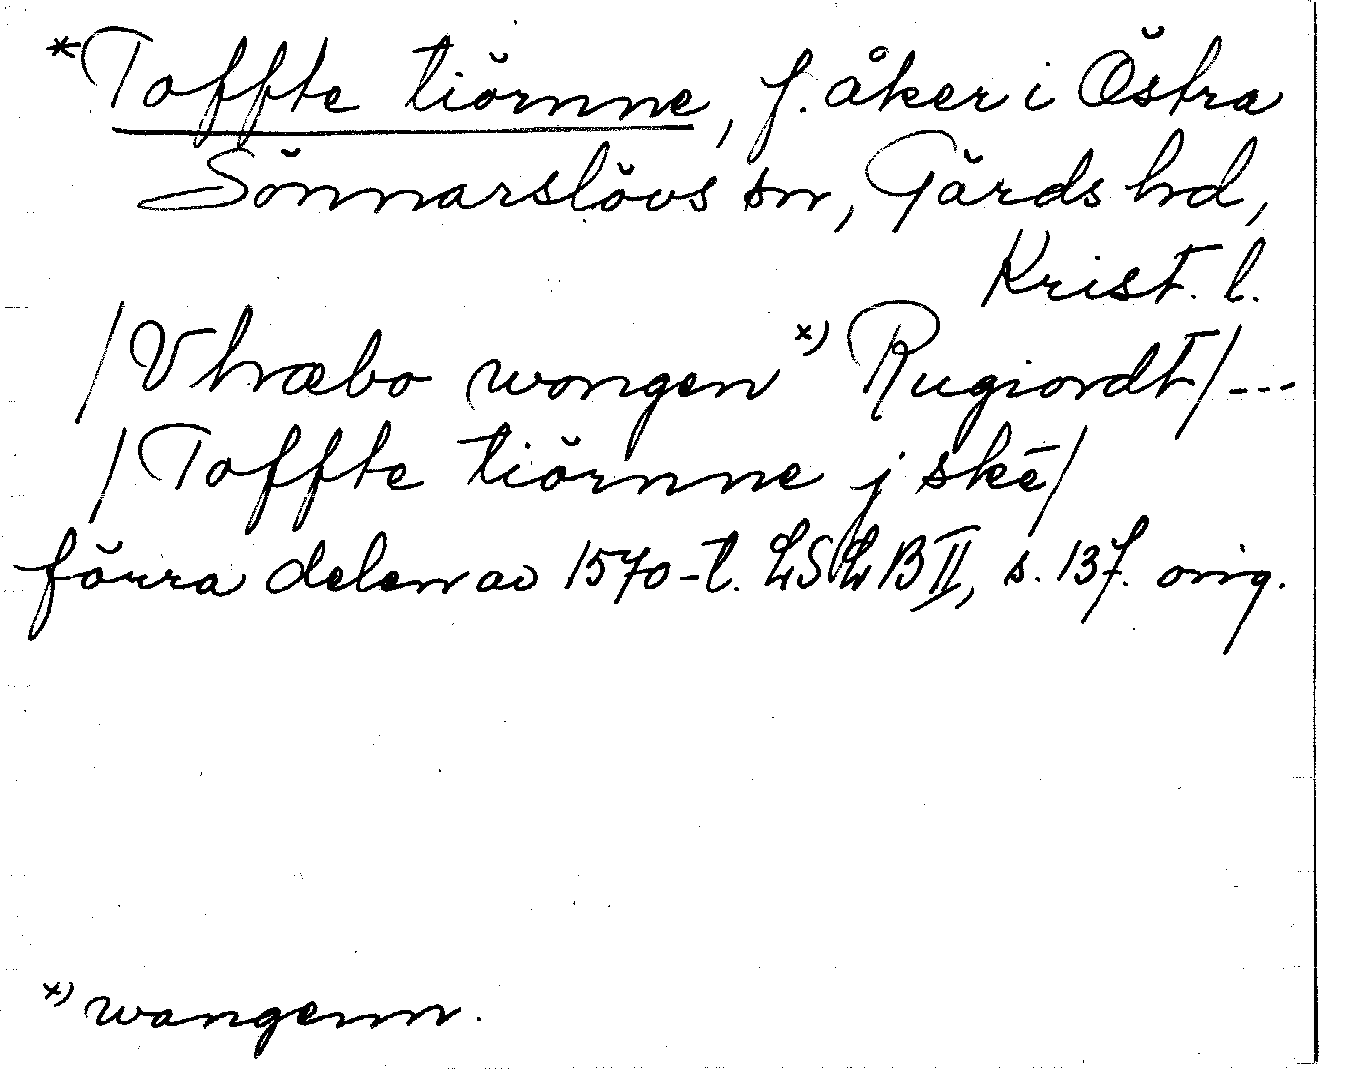 *Toffte tiörnne, f. åker i Östra
Sönnarslövs sn, Gärds hd,
Krist. l.
/Vhræbo wongen x) Rugiordt/ ---
/Toffte tiörnne j skē/
förra delen av 1570-t. LSLB II, s. 137. orig.
x) wangenn.